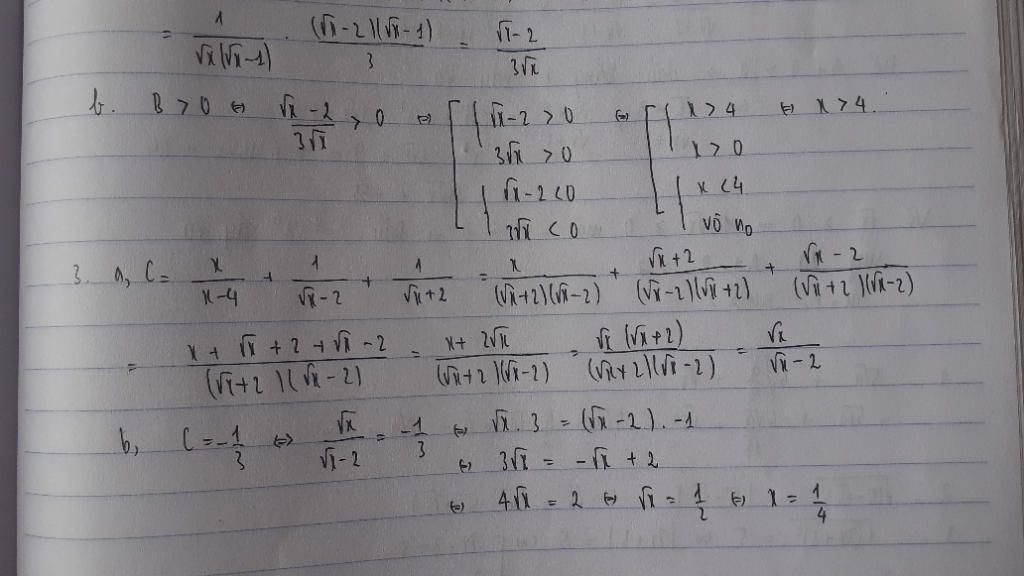 = 1/(√x(√x-1)) . ((√x-2)(√x-1))/3 = (√x-2)/(3√x)
b. B > 0 ⇔ (√x-2)/(3√x) > 0 ⇔ [ { √x-2 > 0 ⇔ [ { x > 4 ⇔ x > 4.
3√x > 0 x > 0
{ √x-2 < 0 { x < 4
3√x < 0 vô n0
3. a, C = x/(x-4) + 1/(√x-2) + 1/(√x+2) = x/((√x+2)(√x-2)) + (√x+2)/((√x-2)(√x+2)) + (√x-2)/((√x+2)(√x-2))
= (x + √x + 2 + √x - 2)/((√x+2)(√x-2)) = (x + 2√x)/((√x+2)(√x-2)) = (√x(√x+2))/((√x+2)(√x-2)) = √x/(√x-2)
b, C = -1/3 ⇔ √x/(√x-2) = -1/3 ⇔ √x . 3 = (√x-2) . -1
⇔ 3√x = -√x + 2
⇔ 4√x = 2 ⇔ √x = 1/2 ⇔ x = 1/4